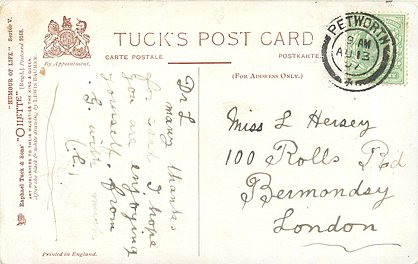 "HUMOUR OF LIFE." Series V.
Raphael Tuck & Sons' "OILETTE" [Regd.] Postcard 9168.
ART PUBLISHERS TO THEIR MAJESTIES THE KING & QUEEN.
After the black & white drawing by LEWIS BAUMER.
By Appointment.
TUCK'S POST CARD
CARTE POSTALE
POSTKARTE
(FOR ADDRESS ONLY.)
PETWORTH
8 AM
AU 13
07
Dr L
many thanks
for card I hope
you are enjoying
yourself. From
G. with
Miss L Hersey
100 Rolls Rd
Bermondsy
London
Printed in England.